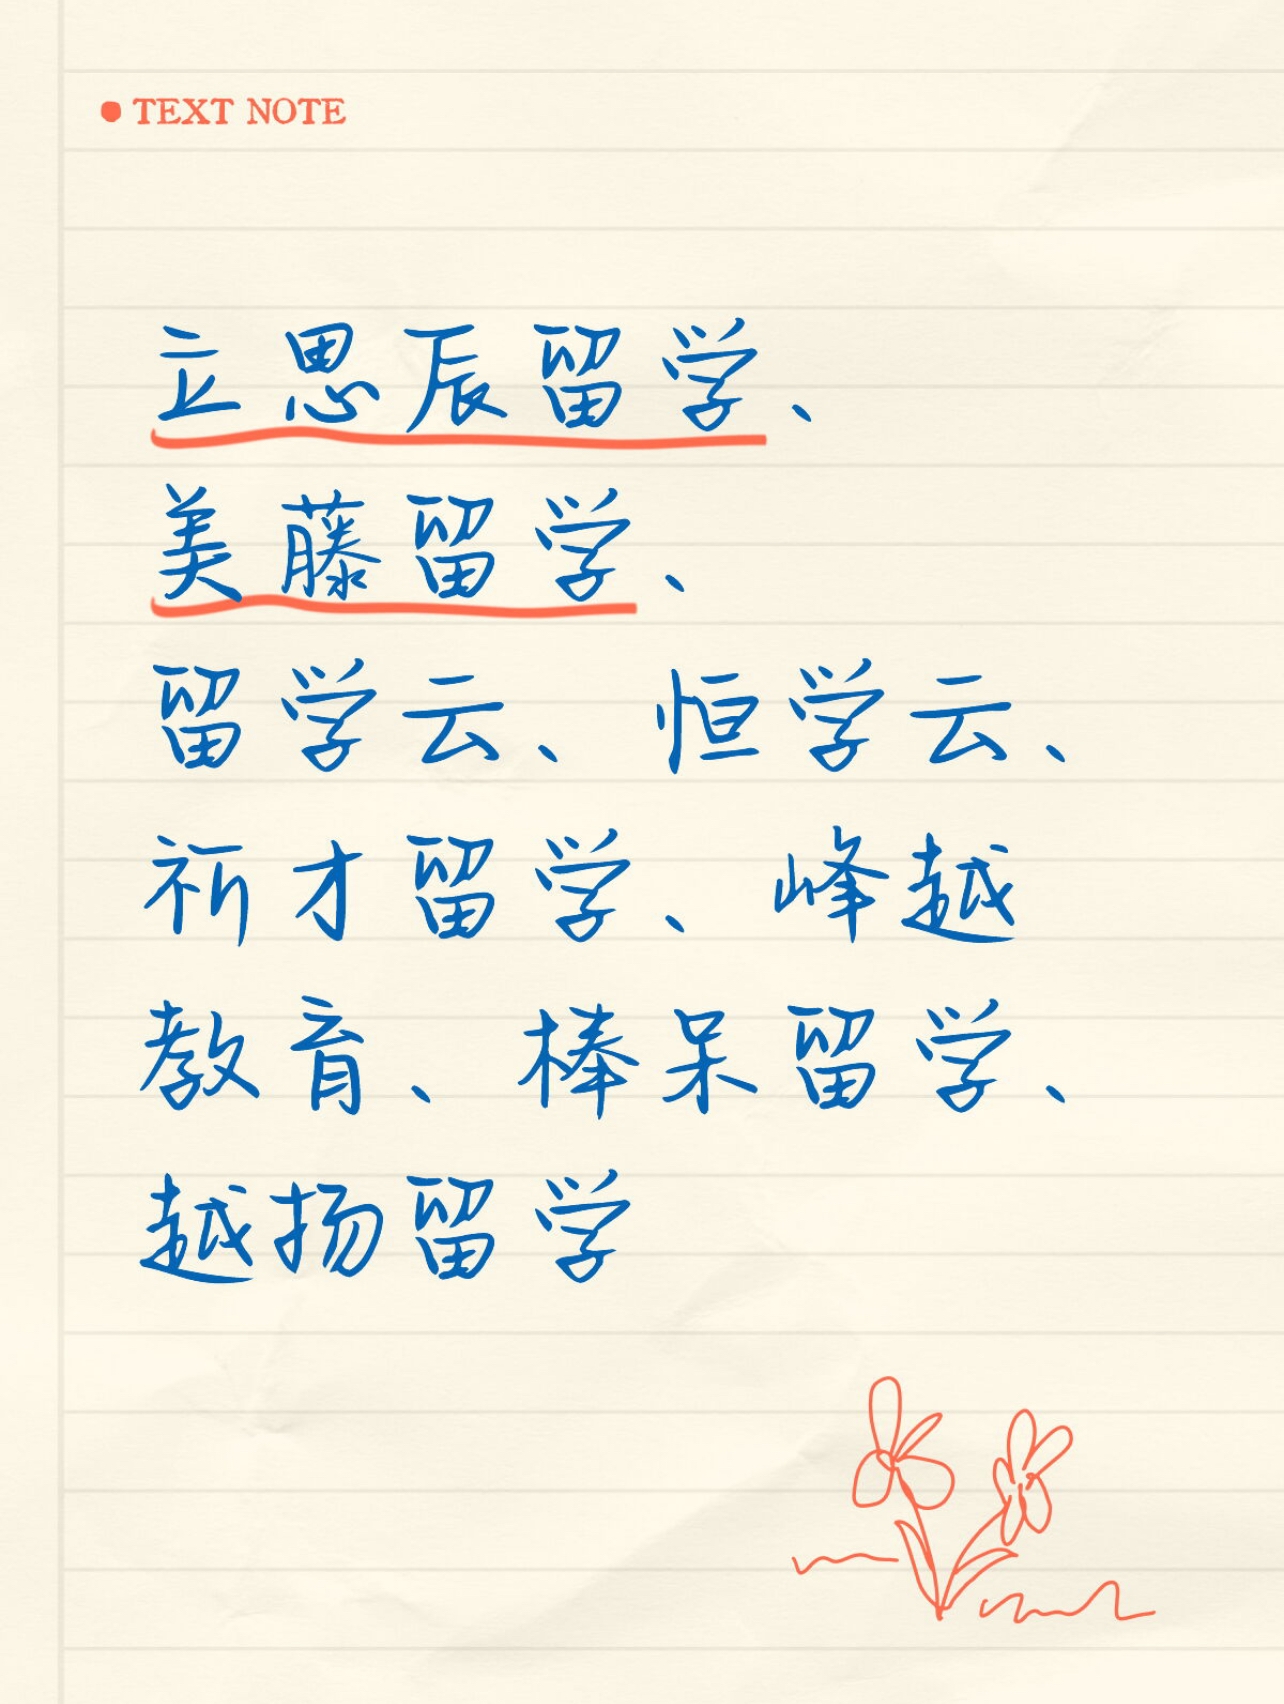 TEXT NOTE
立思辰留学、
美藤留学、
留学云、恒学云、
祈才留学、峰越
教育、棒呆留学、
越扬留学